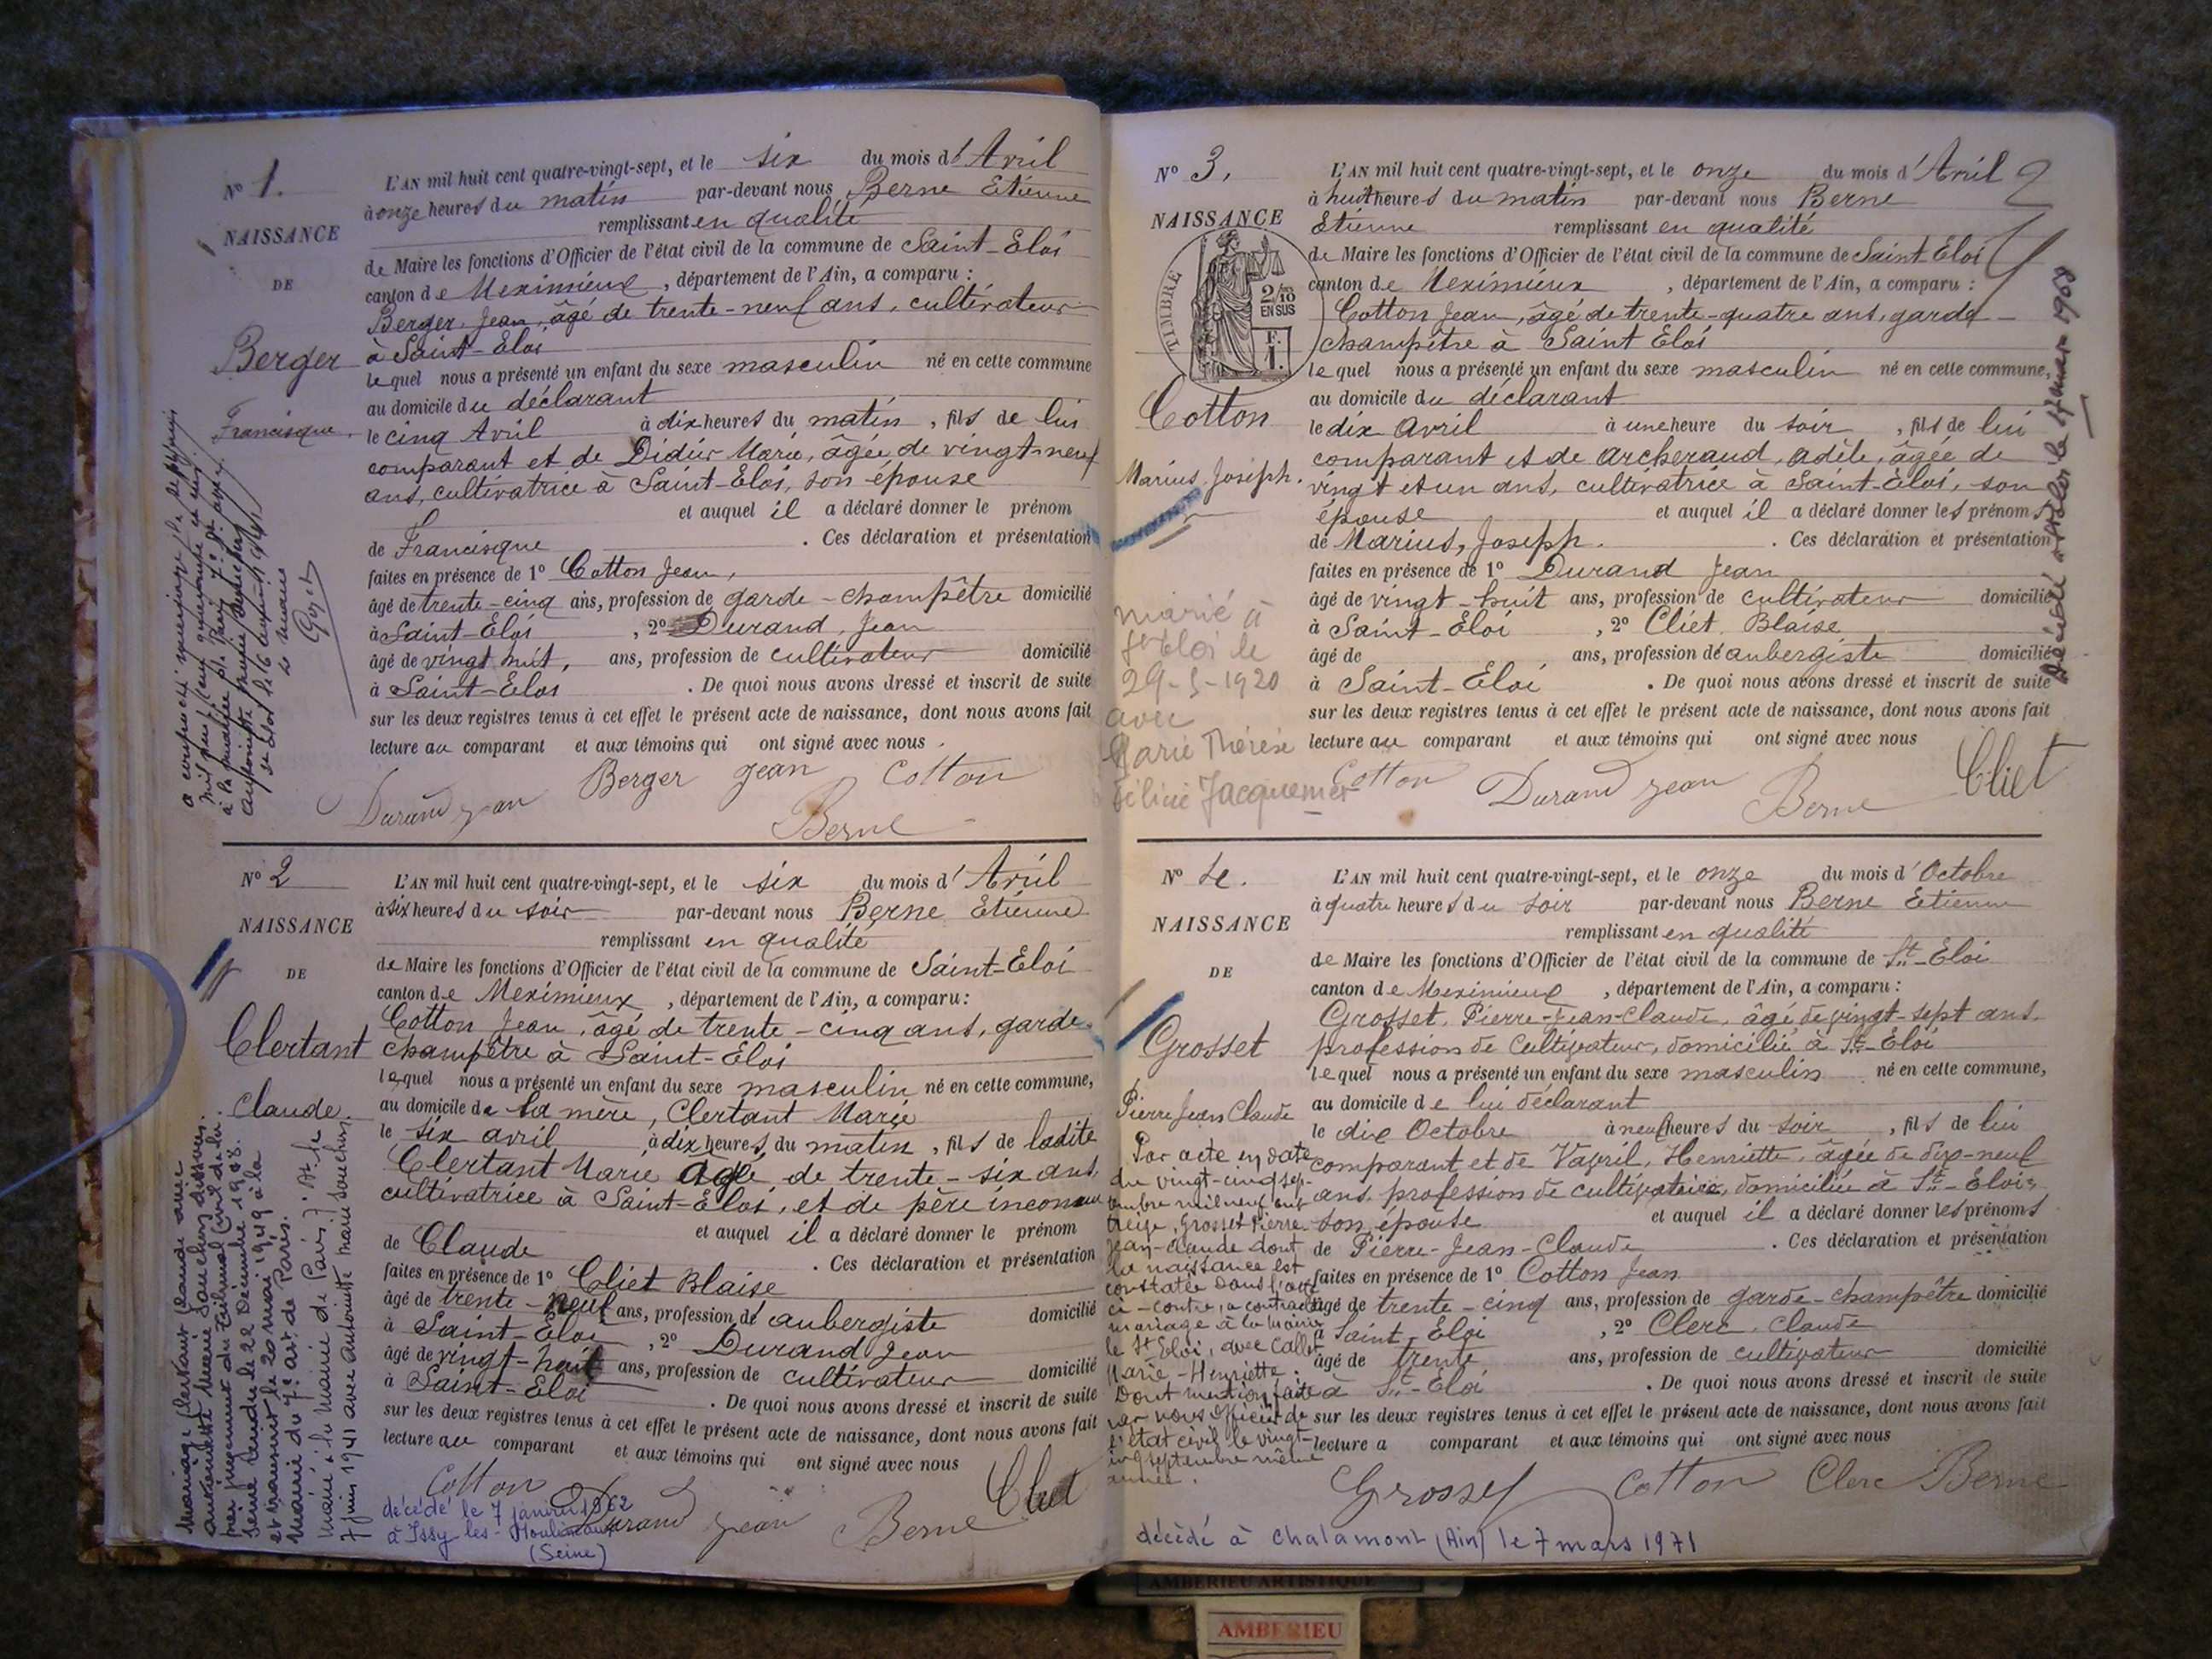 N° 1.
NAISSANCE
DE
Berger
Francisque.
L'AN mil huit cent quatre-vingt-sept, et le six du mois d'Avril
à onze heures du matin par-devant nous Berne Etienne
remplissant en qualité
de Maire les fonctions d'Officier de l'état civil de la commune de Saint-Eloi
canton de Meximieux, département de l'Ain, a comparu :
Berger, Jean, âgé de trente-neuf ans, cultivateur
à Saint-Eloi
lequel nous a présenté un enfant du sexe masculin né en cette commune
au domicile du déclarant
le cinq Avril à dix heures du matin, fils de lui
comparant et de Didier Marie, âgée de vingt-neuf
ans, cultivatrice à Saint-Eloi, son épouse
et auquel il a déclaré donner le prénom
de Francisque. Ces déclaration et présentation
faites en présence de 1° Cotton Jean,
âgé de trente-cinq ans, profession de garde-champêtre domicilié
à Saint-Eloi, 2° Durand, Jean
âgé de vingt huit, ans, profession de cultivateur domicilié
à Saint-Eloi. De quoi nous avons dressé et inscrit de suite
sur les deux registres tenus à cet effet le présent acte de naissance, dont nous avons fait
lecture au comparant et aux témoins qui ont signé avec nous.
Berger Jean Cotton
Durand Jean
Berne
N° 2
NAISSANCE
DE
Clertant
Claude.
Mariage Clertant Claude avec
antoinette Marie Sauchon dissous
par jugement du Tribunal Civil de la
Seine rendu le 22 Décembre 1948.
et transcrit le 20 mai 1949 à la
Mairie du 7e art de Paris.
Marié à la Mairie de Paris 7e Art le
7 juin 1941 avec Antoinette Marie Sauchon
L'AN mil huit cent quatre-vingt-sept, et le six du mois d'Avril
à six heures du soir par-devant nous Berne Etienne
remplissant en qualité
de Maire les fonctions d'Officier de l'état civil de la commune de Saint-Eloi
canton de Meximieux, département de l'Ain, a comparu :
Cotton Jean, âgé de trente-cinq ans, garde
champêtre à Saint-Eloi
lequel nous a présenté un enfant du sexe masculin né en cette commune,
au domicile de la mère, Clertant Marie
le six avril à dix heures du matin, fils de ladite
Clertant Marie âgée de trente-six ans,
cultivatrice à Saint-Eloi, et de père inconnu
et auquel il a déclaré donner le prénom
de Claude. Ces déclaration et présentation
faites en présence de 1° Cliet Blaise
âgé de trente-neuf ans, profession de aubergiste domicilié
à Saint-Eloi, 2° Durand Jean
âgé de vingt-huit ans, profession de cultivateur domicilié
à Saint-Eloi. De quoi nous avons dressé et inscrit de suite
sur les deux registres tenus à cet effet le présent acte de naissance, dont nous avons fait
lecture au comparant et aux témoins qui ont signé avec nous
Cotton Durand Jean Berne Cliet
décédé le 7 janvier 1962
à Issy les-Moulineaux
(Seine)
N° 3.
NAISSANCE
TIMBRE
2/10
EN SUS
F.
1.
Cotton
Marius, Joseph.
marié à
St Eloi le
29-5-1920
avec
Marie Thérèse
Jacquemet
L'AN mil huit cent quatre-vingt-sept, et le onze du mois d'Avril
à huit heures du matin par-devant nous Berne
Etienne remplissant en qualité
de Maire les fonctions d'Officier de l'état civil de la commune de Saint Eloi
canton de Meximieux, département de l'Ain, a comparu :
Cotton Jean, âgé de trente-quatre ans, garde-
champêtre à Saint Eloi
lequel nous a présenté un enfant du sexe masculin né en cette commune,
au domicile du déclarant
le dix avril à une heure du soir, fils de lui
comparant et de Archeraud, Adèle, âgée de
vingt et un ans, cultivatrice à Saint-Eloi, son
épouse et auquel il a déclaré donner les prénoms
de Marius, Joseph. Ces déclaration et présentation
faites en présence de 1° Durand Jean
âgé de vingt-huit ans, profession de cultivateur domicilié
à Saint-Eloi, 2° Cliet, Blaise
âgé de ans, profession de aubergiste domicilié
à Saint-Eloi. De quoi nous avons dressé et inscrit de suite
sur les deux registres tenus à cet effet le présent acte de naissance, dont nous avons fait
lecture au comparant et aux témoins qui ont signé avec nous
Cotton Durand Jean Berne Cliet
N° 4.
NAISSANCE
DE
Grosset
Pierre Jean Claude
Par acte en date
du vingt-cinq sep-
tembre mil neuf cent
treize, Grosset Pierre
Jean-Claude dont
la naissance est
constatée dans l'acte
ci-contre, a contracté
mariage à la Mairie
de St Eloi, avec Callet
Marie-Henriette.
Dont mention faite
par nous Officier de
l'état civil le vingt-
cinq septembre même
année.
L'AN mil huit cent quatre-vingt-sept, et le onze du mois d'Octobre
à quatre heures du soir par-devant nous Berne Etienne
remplissant en qualité
de Maire les fonctions d'Officier de l'état civil de la commune de St-Eloi
canton de Meximieux, département de l'Ain, a comparu :
Grosset, Pierre-Jean-Claude, âgé de vingt-sept ans,
profession de cultivateur, domicilié à St-Eloi
lequel nous a présenté un enfant du sexe masculin né en cette commune,
au domicile de lui déclarant
le dix Octobre à neuf heures du soir, fils de lui
comparant et de Vayril, Henriette, âgée de dix-neuf
ans, profession de cultivatrice, domiciliée à St-Eloi,
son épouse et auquel il a déclaré donner les prénoms
de Pierre-Jean-Claude. Ces déclaration et présentation
faites en présence de 1° Cotton Jean
âgé de trente-cinq ans, profession de garde-champêtre domicilié
à Saint-Eloi, 2° Clerc, Claude
âgé de trente ans, profession de cultivateur domicilié
à St-Eloi. De quoi nous avons dressé et inscrit de suite
sur les deux registres tenus à cet effet le présent acte de naissance, dont nous avons fait
lecture a comparant et aux témoins qui ont signé avec nous
Grosset Cotton Clerc Berne
décédé à Chalamont (Ain) le 7 mars 1971
AMBERIEU ARTISTIQUE
AMBERIEU